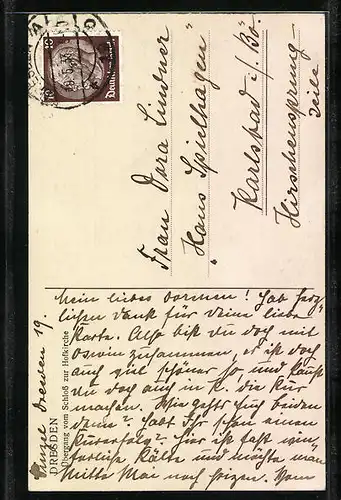 Frau Dora Lindner
"Haus Spielhagen"
Karlsbad i/Bö.
Hirschensprung-
zeile
Deutsches Reich
DRESDEN
Übergang vom Schloß zur Hofkirche
Dresden 19.
Mein liebes Dorchen! Hab herz-
lichen Dank für Deine liebe
Karte. Also bist Du doch mit
Oswin zusammen, er ist doch
auch viel schöner so und
Du doch auch in K. die Kur
machen. Wie geht's Euch beiden
denn? Habt Ihr schon einen
Kurerfolg? Hier ist fast win-
terliche Kälte und möchte man
Mitte Mai noch heizen. Vom